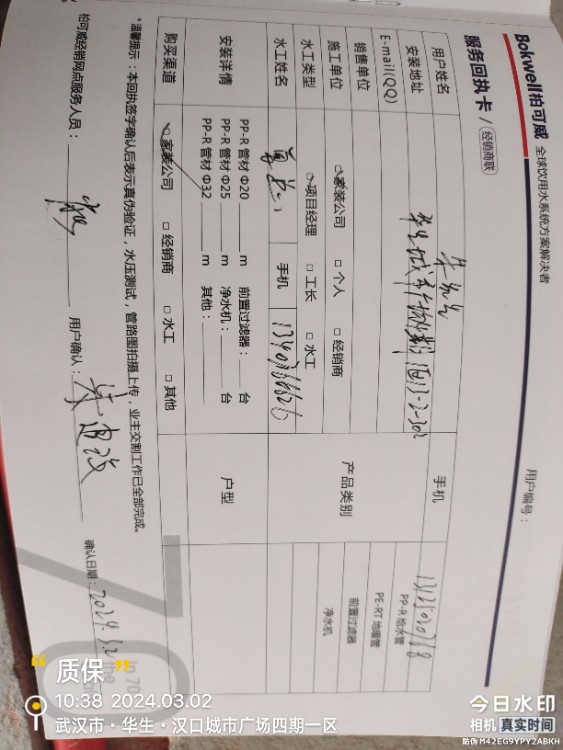 Bokwell柏可威 全球饮用水系统方案解决者
服务回执卡 / 经销商联
用户编号：
用户姓名 朱先生 手机 13125020768
安装地址 华生城市广场四期
E-mail(QQ)
销售单位
施工单位 □家装公司 □个人 □经销商
水工类型 □项目经理 □工长 □水工
水工姓名 手机
产品类别 PP-R 给水管
PE-RT 地暖管
前置过滤器
净水机
安装详情 PP-R 管材 Φ20 m 前置过滤器： 台
PP-R 管材 Φ25 m 净水机： 台
PP-R 管材 Φ32 m 其他：
户型
购买渠道 □家装公司 □经销商 □水工 □其他
*温馨提示：本回执签字确认后表示真伪验证，水压测试，管路图拍摄上传，业主交割工作已全部完成。
柏可威经销网点服务人员： 用户确认： 确认日期：2024.3.2
质保
10:38 2024.03.02
武汉市·华生·汉口城市广场四期一区
今日水印
相机 真实时间
防伪 M42EG9YPY2ABKH